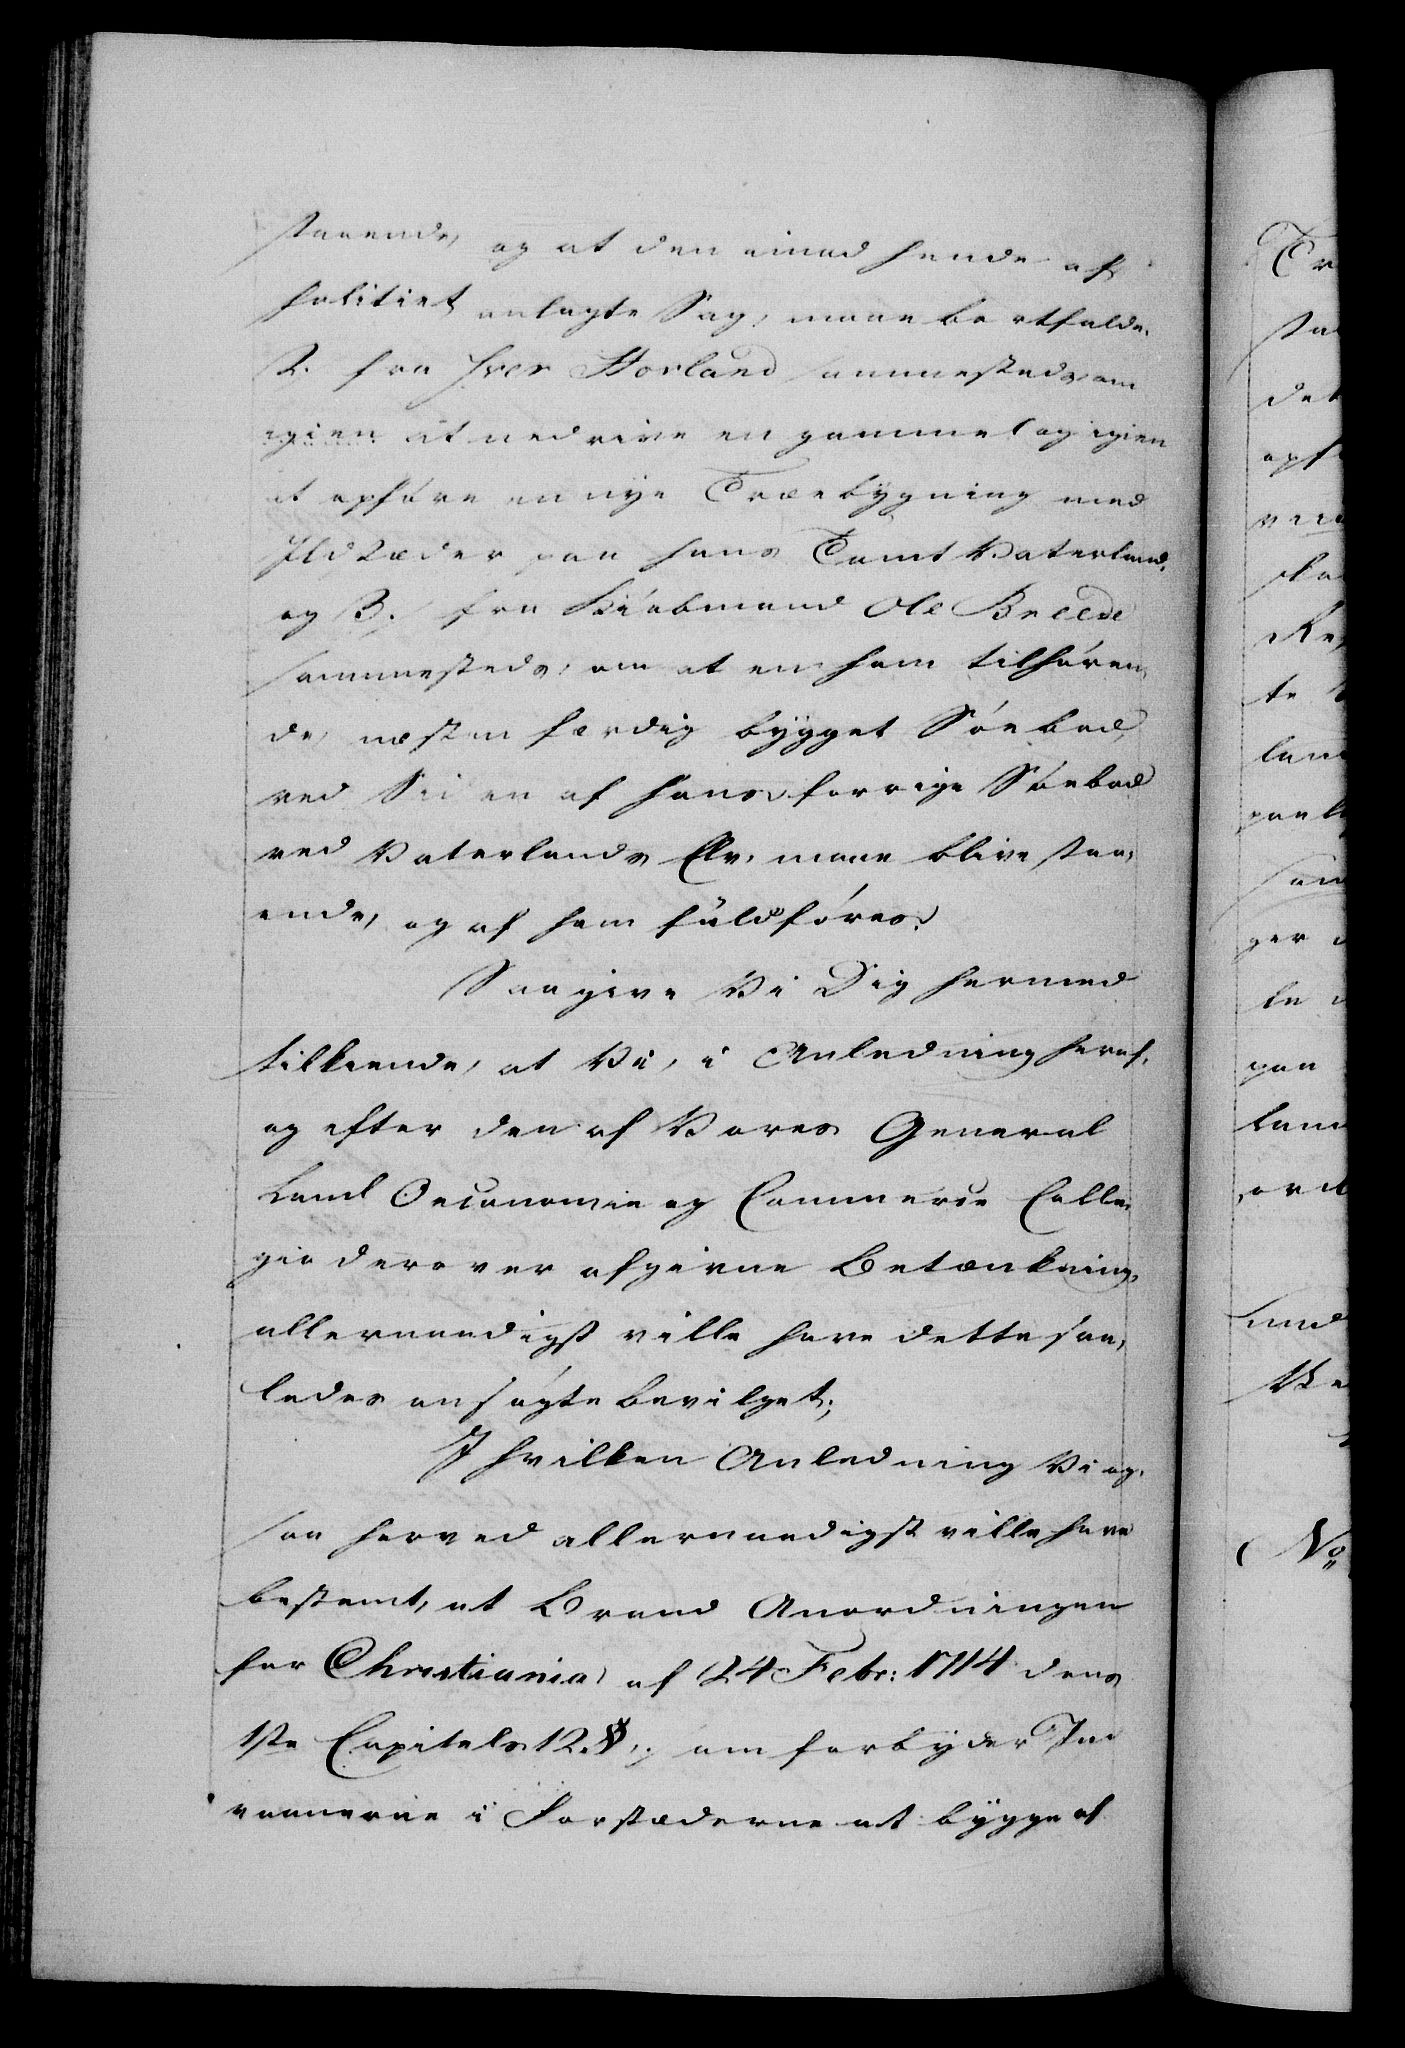 staaende, og at den imod hende af
Politiet anlagte Sag, maae bortfalde.
2. fra Iver Horland sammesteds om
igien at nedrive en gammel og igien
at opføre en nye Træebygning med
Ildstæder paa hans Tomt Vaterland,
og 3. fra Kiøbmand Ole Breede
sammesteds, om at en ham tilhøren,
de, næsten færdig bygget Søebod,
ved Siden af hans forrige Søebod
ved Vaterlands Elv, maae blive staa,
ende, og af ham fuldføres.
Saa give Vi Dig hermed
tilkiende, at Vi, i Anledning heraf,
og efter den af Vores General
Land Oeconomie og Commerce Colle,
gio derover afgivne Betænkning,
allernaadigst ville have dette saa,
ledes ansøgte bevilget;
I hvilken Anledning Vi og,
saa herved allernaadigst ville have
bestemt, at Brand Anordningen
for Christiania, af 24 Febr: 1714 dens
1ste Capitels 12. §, som forbyder Ind
vaanerne i Forstæderne at bygge af